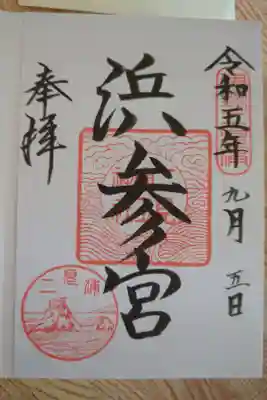 令和五年九月五日
浜参宮
奉拝
二見浦